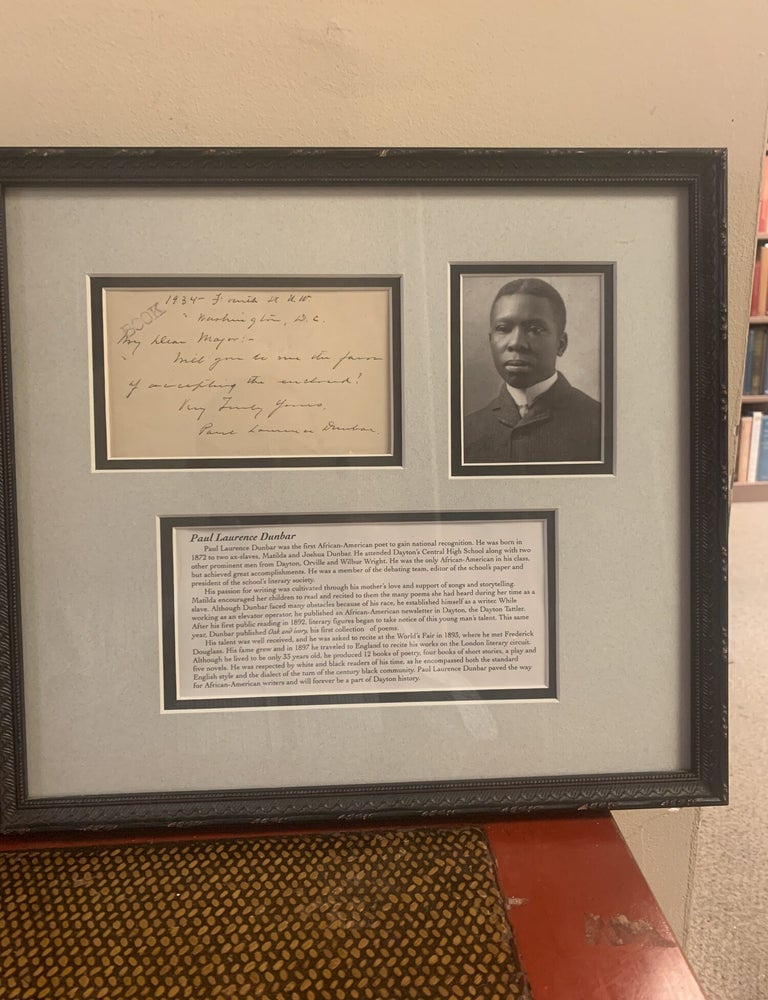 BOOK
1934 Fourth St. N.W
Washington, D.C.
My Dear Major:-
Will you do me the favor
of accepting the enclosed?
Very Truly Yours,
Paul Laurence Dunbar
Paul Laurence Dunbar
Paul Laurence Dunbar was the first African-American poet to gain national recognition. He was born in
1872 to two ex-slaves, Matilda and Joshua Dunbar. He attended Dayton's Central High School along with two
other prominent men from Dayton, Orville and Wilbur Wright. He was the only African-American in his class,
but achieved great accomplishments. He was a member of the debating team, editor of the school's paper and
president of the school's literary society.
His passion for writing was cultivated through his mother's love and support of songs and storytelling.
Matilda encouraged her children to read and recited to them the many poems she had heard during her time as a
slave. Although Dunbar faced many obstacles because of his race, he established himself as a writer. While
working as an elevator operator, he published an African-American newsletter in Dayton, the Dayton Tattler.
After his first public reading in 1892, literary figures began to take notice of this young man's talent. This same
year, Dunbar published Oak and ivory, his first collection of poems.
His talent was well received, and he was asked to recite at the World's Fair in 1893, where he met Frederick
Douglass. His fame grew and in 1897 he traveled to England to recite his works on the London literary circuit.
Although he lived to be only 33 years old, he produced 12 books of poetry, four books of short stories, a play and
five novels. He was respected by white and black readers of his time, as he encompassed both the standard
English style and the dialect of the turn of the century black community. Paul Laurence Dunbar paved the way
for African-American writers and will forever be a part of Dayton history.